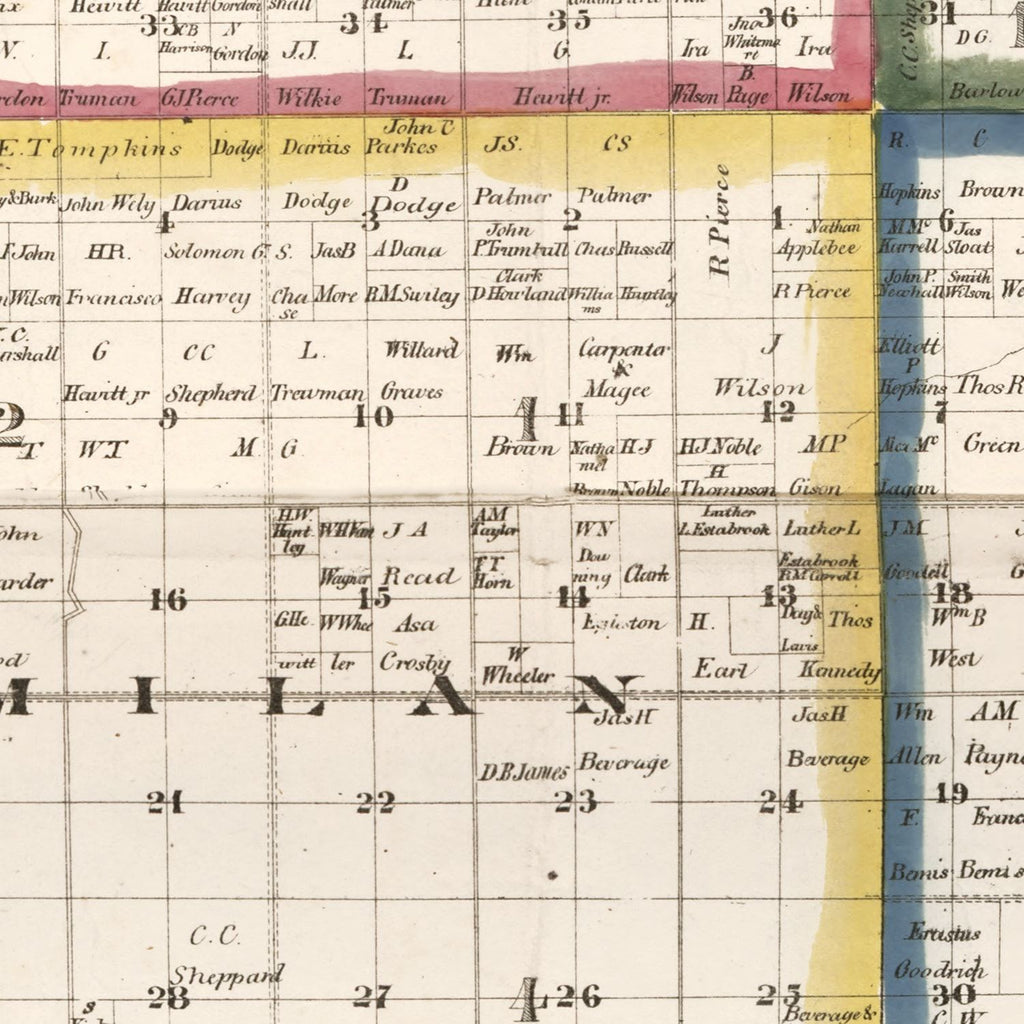 Hewitt Hewitt Gordon shall Palmer
33 34 35 36 31
CB N Jno
I. Harrison Gordon J.J. L G. Ira Whitema Ira D G.
rt
B.
Truman GJ Pierce Wilkie Truman Hewitt jr. Wilson Page Wilson Barlow
John C
E. Tompkins Dodge Darius Parkes J S. C S R. C
D
John Wely Darius Dodge Dodge Palmer Palmer R Pierce Hopkins Brown
4 3 2 1 6
John Nathan M Mc Jas
John HR. Solomon G S. JasB A Dana P. Trumbull Chas Russell Applebee Harrell Sloat
Clark John P. Smith
Wilson Francisco Harvey Cha More R.M. Swiley D Howland Willia Huntley R Pierce Newhall Wilson
se ms
G C C L. Willard Wm Carpenter J Elliott
& P
Hewitt jr Shepherd Trewman Graves Magee Wilson Hopkins Thos R
2 9 10 1 11 12 7
T W T M G Brown Natha H J H J Noble M P Alex Mc Green
niel H
Brown Noble Thompson Gison Lagan
H.W. A M Luther
John Hunt W H Van J A Taylor W N L Estabrook Luther L J M
ley
T T Dow Estabrook
arder Wagner Read Horn ning Clark R M Carroll Goodell G
16 15 14 13 18
G. He W Whee Asa H. Day & Thos Wm B
W
witt ler Crosby Wheeler Earl Lavis Kennedy West
M I L A N
Jas H Jas H Wm A M
D. B James Beverage Beverage Allen Payne
21 22 23 24 19
F. Franc
Bemis Bemis
C. C. Erastus
Sheppard Goodrich
28 27 4 26 25 30
s Beverage & C. W